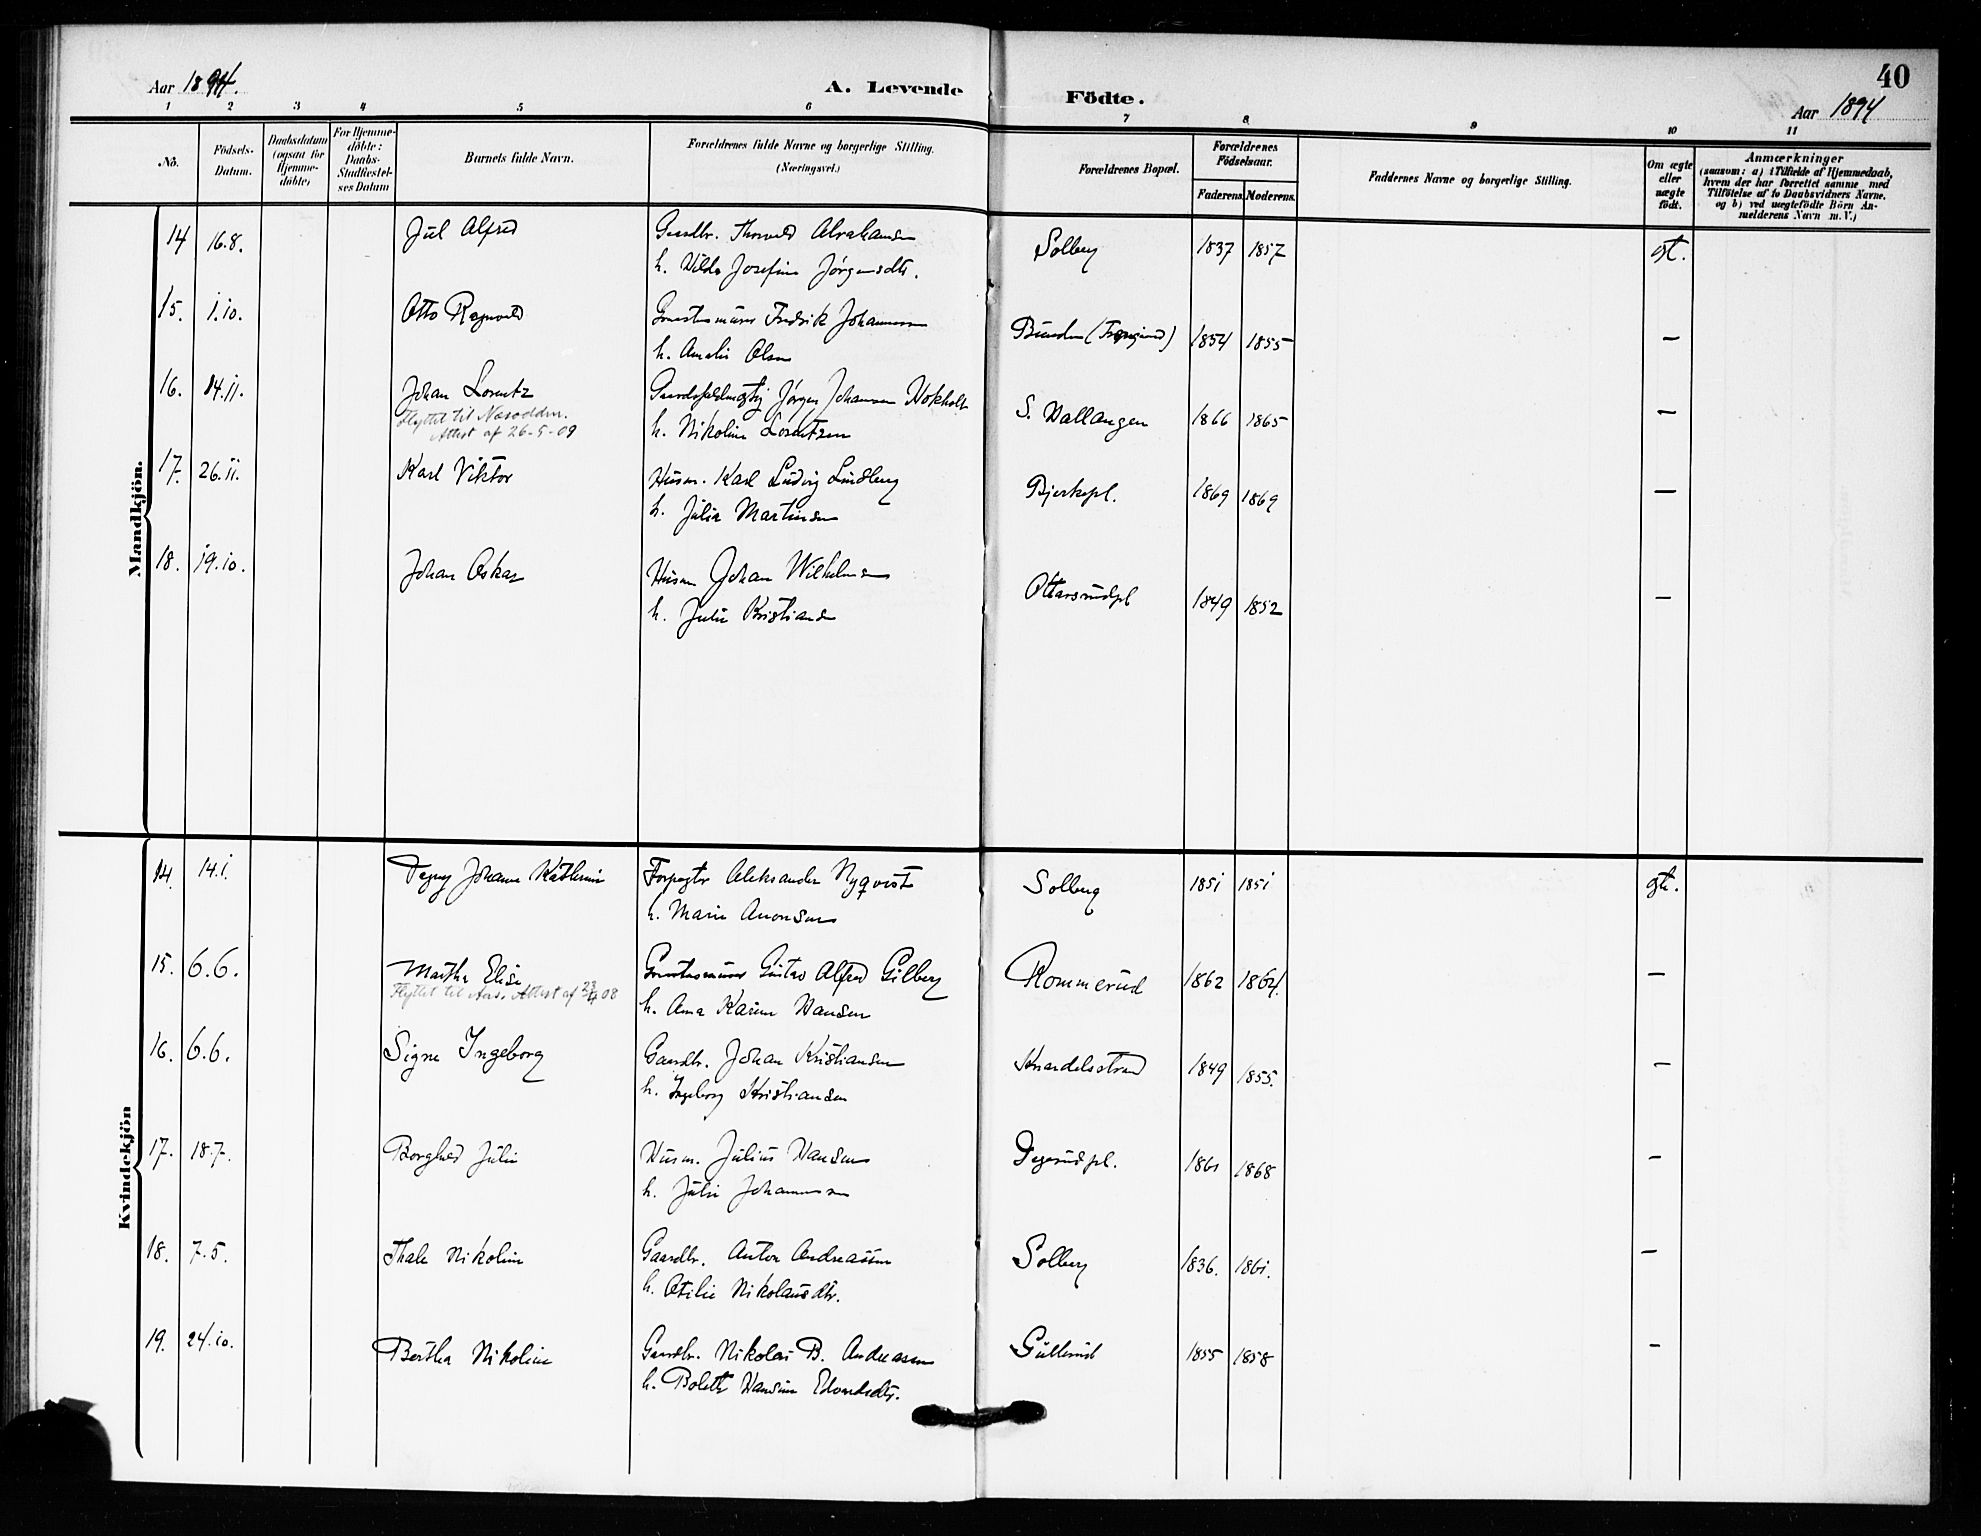 40
Aar 1894.
A. Levende
Födte.
Aar 1894
1 2 3 4 5 6 7 8 9 10 11
No.
Födsels-
Datum.
Daabsdatum
(ogsaa for
Hjemme-
döbte)
For Hjemme-
döbte:
Daabs-
Stadfæstel-
ses Datum
Barnets fulde Navn.
Forældrenes fulde Navne og borgerlige Stilling.
(Næringsvei.)
Forældrenes Bopæl.
Forældrenes
Födselsaar.
Faderens. Moderens.
Faddernes Navne og borgerlige Stilling.
Om ægte
eller
uægte
födt.
Anmærkninger
(saasom: a) i Tilfælde af Hjemmedaab,
hvem der har forrettet samme med
Tilföielse af to Daabsvidners Navne.
og b) ved uægtefödte Börn An-
melderens Navn m. V.)
Mandkjön.
14 16.8. Jul Alfred Gaardbr. Thorvald Abrahamsen Solberg 1837 1857 gt.
h. Hilda Josefine Jørgensdtr.
15. 1.10. Otto Ragnvald Grubesmurer Fredrik Johannessen 1854 1855 —
h. Amalie Olsen
16. 14.11. Johan Lorentz Gaardsfuldmægtig Jørgen Johansen Hokholt S. Hallangen 1866 1865 —
Flyttet til Næsodden.
Attest af 26-5-09
h. Nikoline Lorentzen
17. 26.11. Karl Viktor Husm. Karl Ludvig Lindberg Bjerkepl. 1869 1869 —
h. Julia Martinsen
18. 19.10. Johan Oskar Husm Johan Wilhelmsen Ottarsrudpl 1849 1852 —
h. Julie Kristiansen
Kvindekjön
14. 14.1. Dagny Johanne Kathrine Forpagter Aleksander Nyqvist Solberg 1851 1851 gte.
h. Marie Aronsen
15. 6.6. Martha Elise Gustav Alfred Gilberg Rommerud 1862 1864. —
Flyttet til Aas. Attest af 23/4 08
h. Anna Karine Hansen
16. 6.6. Signe Ingeborg Gaardbr. Johan Kristiansen Knardalsstrand 1849 1855. —
h. Ingeborg Kristiansen
17. 18.7. Borghild Julie Husm. Julius Hansen Degerudpl. 1861 1868 —
h. Julie Johannessen
18. 7.5. Thale Nikoline Gaardbr. Anton Andreassen Solberg 1836. 1861. —
h. Otilie Nikolausdtr.
19. 24.10. Bertha Nikoline Gaardbr. Nikolai B. Andreasen Gullerud 1855 1858 —
h. Bolette Hansine Edvardsdtr.